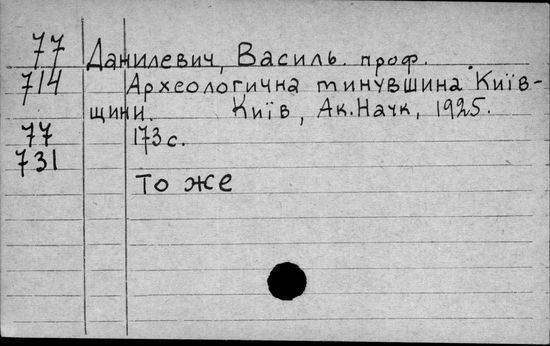 77 Данилевич, Василь. проф.
714 Археологична минувшина Київ-
щини. Київ, Ак.Наук, 1925.
77 173 с.
731
То же